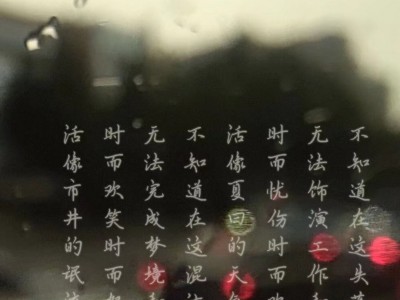 不知道在这头
无法饰演工作
时而忧伤时而
活像夏回的天
不知道在这混
无法完成梦境
时而欢笑时而
活像市井的氓